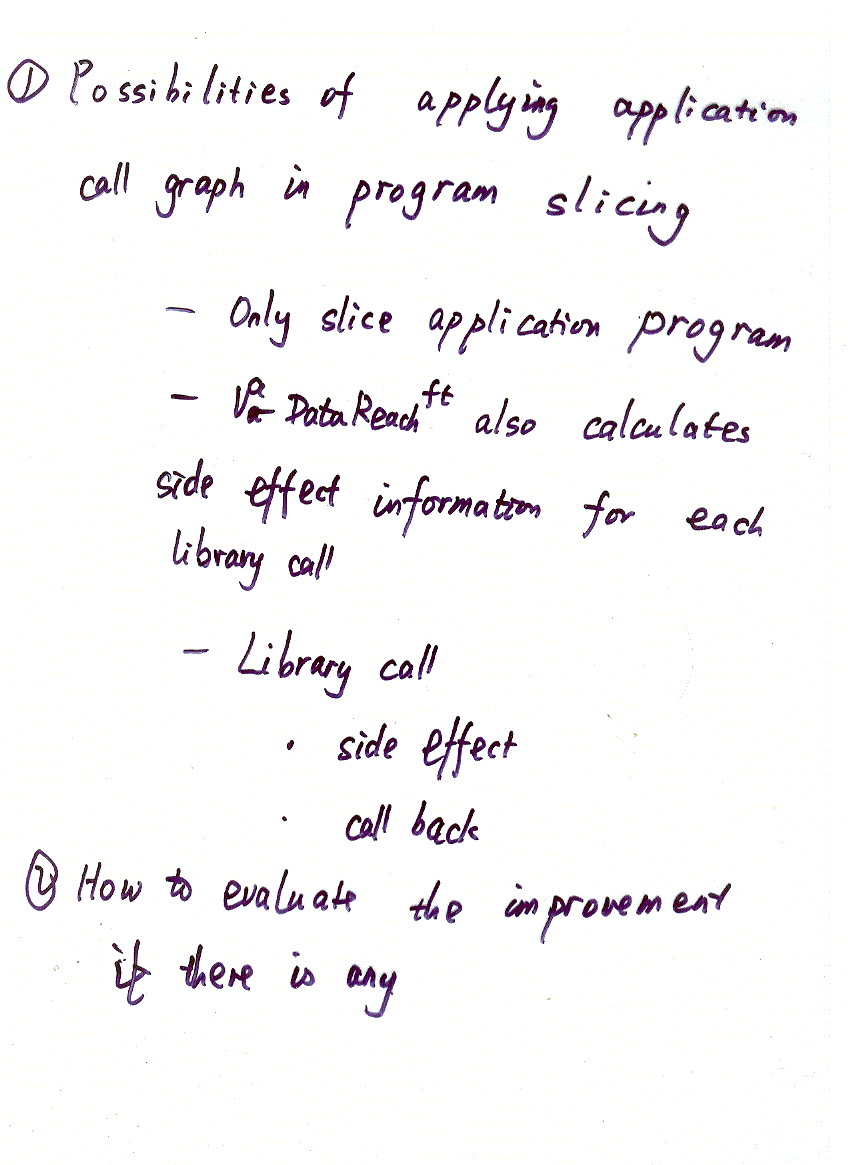 ① Possibilities of applying application
call graph in program slicing
- Only slice application program
- V^a- DataReach^ft also calculates
side effect information for each
library call
- Library call
· side effect
· call back
② How to evaluate the improvement
if there is any